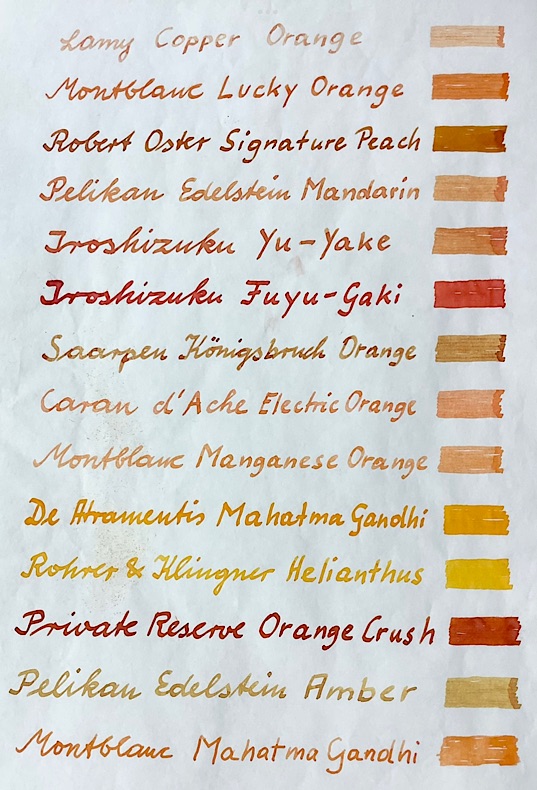 Lamy Copper Orange
Montblanc Lucky Orange
Robert Oster Signature Peach
Pelikan Edelstein Mandarin
Iroshizuku Yu-Yake
Iroshizuku Fuyu-Gaki
Saarpen Königsbruch Orange
Caran d'Ache Electric Orange
Montblanc Manganese Orange
De Atramentis Mahatma Gandhi
Rohrer & Klingner Helianthus
Private Reserve Orange Crush
Pelikan Edelstein Amber
Montblanc Mahatma Gandhi